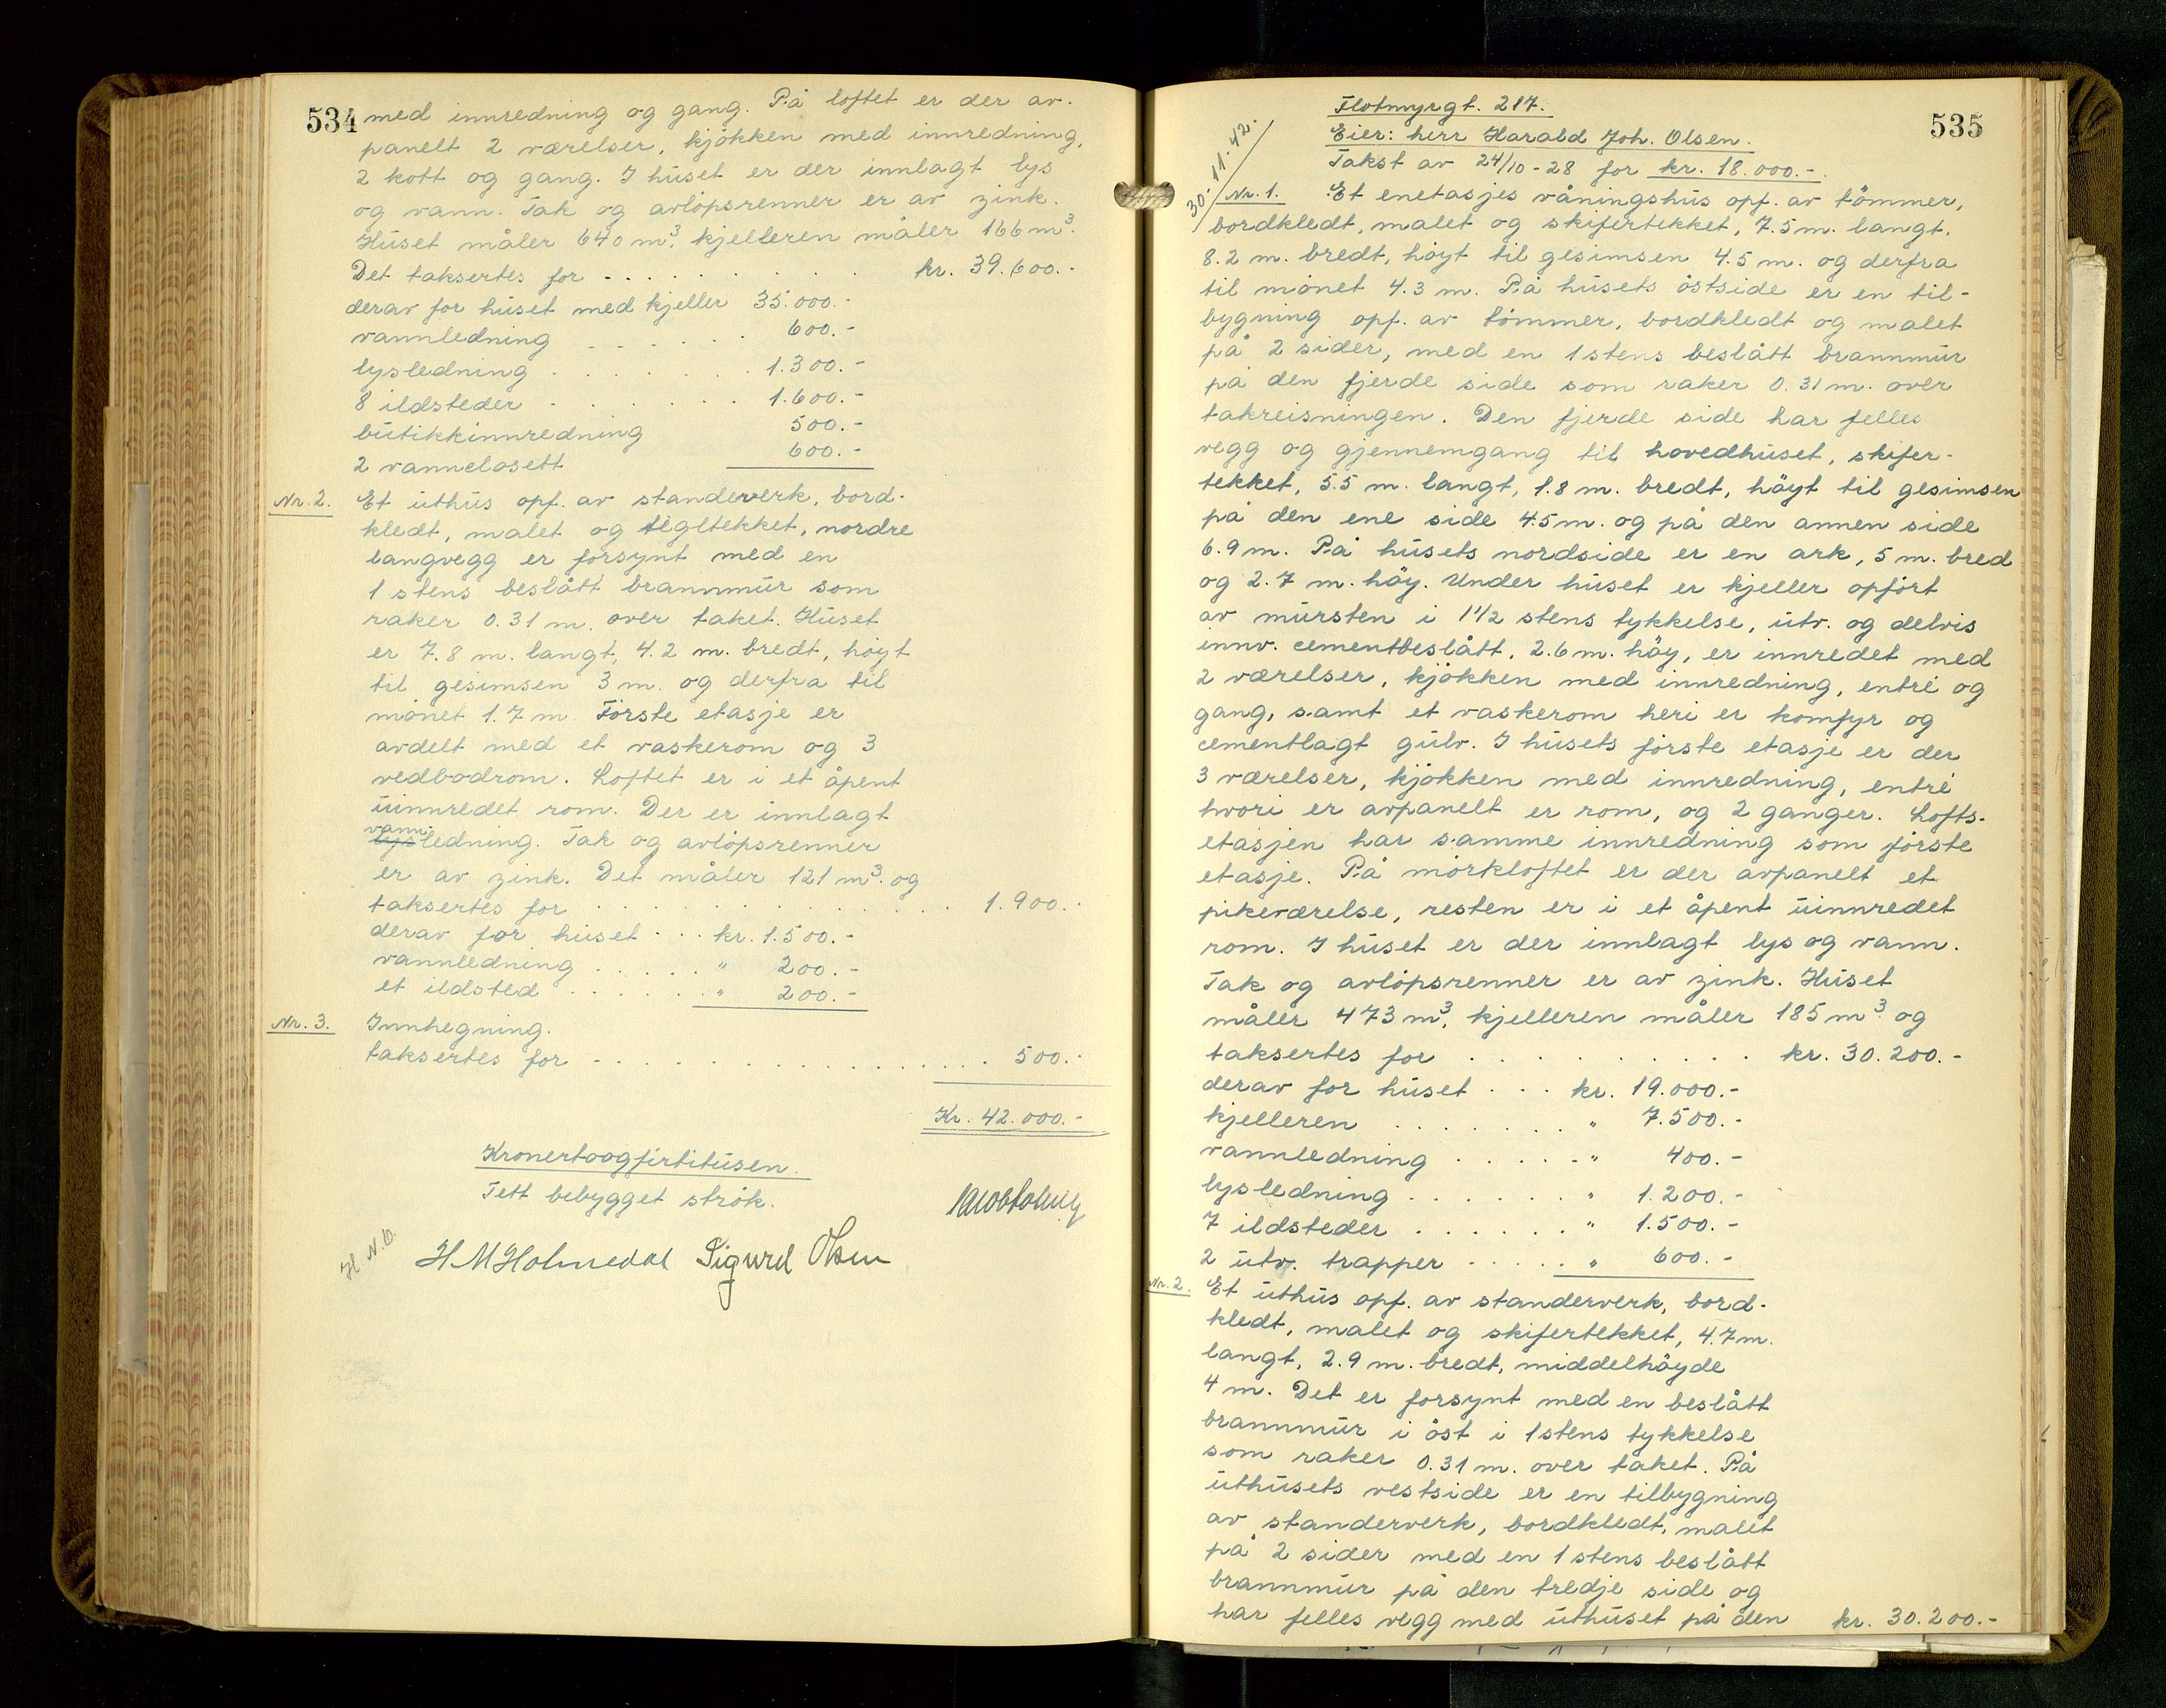 534
med innredning og gang. På loftet er der av-
panelt 2 værelser, kjøkken med innredning,
2 kott og gang. I huset er der innlagt lys
og vann. Tak og avløpsrenner er av zink.
Huset måler 640 m³, kjelleren måler 166 m³.
Det taksertes for - . . . . . . . . kr. 39.600.-
derav for huset med kjeller 35.000.-
vannledning - - . . . . 600.-
lysledning . . . . . . . 1.300.-
8 ildsteder - . . . . . . 1.600.-
butikkinnredning 500.-
2 vannclosett 600.-
Nr. 2. Et uthus opf. av standerverk, bord-
kledt, malet og tigltekket, nordre
langvegg er forsynt med en
1 stens beslått brannmur som
raker 0.31 m. over taket. Huset
er 7.8 m. langt, 4.2 m. bredt, høyt
til gesimsen 3 m. og derfra til
mønet 1.7 m. Første etasje er
avdelt med et vaskerom og 3
vedbodrom. Loftet er i et åpent
uinnredet rom. Der er innlagt
vann-
lysledning. Tak og avløpsrenner
er av zink. Det måler 121 m³. og
taksertes for . . . . . . . . . . . . 1.900.-
derav for huset . . . kr. 1.500.-
vannledning . . . . . " 200.-
et ildsted . . . . . . " 200.-
Nr. 3. Innhegning.
taksertes for - . . . . . . . . . . . . 500.-
Kr. 42.000.-
Kronertoogfirtitusen.
Tett bebygget strøk.
H. N. O.
H M Holmedal Sigurd Olsen
535
30.11.42.
Flotmyrgt. 217.
Eier: herr Harald Joh. Olsen.
Takst av 24/10-28 for kr. 18.000.-.
Nr. 1. Et enetasjes våningshus opf. av tømmer,
bordkledt, malet og skifertekket, 7.5 m. langt,
8.2 m. bredt, høyt til gesimsen 4.5 m. og derfra
til mønet 4.3 m. På husets østside er en til-
bygning opf. av tømmer, bordkledt og malet
på 2 sider, med en 1 stens beslått brannmur
på den fjerde side som raker 0.31 m. over
takreisningen. Den fjerde side har felles
vegg og gjennemgang til hovedhuset, skifer-
tekket, 5.5 m. langt, 1.8 m. bredt, høyt til gesimsen
på den ene side 4.5 m. og på den annen side
6.9 m. På husets nordside er en ark, 5 m. bred
og 2.7 m. høy. Under huset er kjeller opført
av mursten i 1 1/2 stens tykkelse, utv. og delvis
innv. cementbeslått, 2.6 m. høy, er innredet med
2 værelser, kjøkken med innredning, entré og
gang, samt et vaskerom heri er komfyr og
cementlagt gulv. I husets første etasje er der
3 værelser, kjøkken med innredning, entré
hvori er avpanelt er rom, og 2 ganger. Lofts-
etasjen har samme innredning som første
etasje. På mørkloftet er der avpanelt et
pikeværelse, resten er i et åpent uinnredet
rom. I huset er der innlagt lys og vann.
Tak og avløpsrenner er av zink. Huset
måler 473 m³, kjelleren måler 185 m³. og
taksertes for . . . . . . . . . kr. 30.200.-
derav for huset . . . kr. 19.000.-
kjelleren . . . . . . . " 7.500.-
vannledning . . . . . - " 400.-
lysledning . . . . . . . " 1.200.-
7 ildsteder . . . . . . " 1.500.-
2 utv. trapper . . . . . " 600.-
Nr. 2. Et uthus opf. av standerverk, bord-
kledt, malet og skifertekket, 4.7 m.
langt, 2.9 m. bredt, middelhøyde
4 m. Det er forsynt med en beslått
brannmur i øst i 1 stens tykkelse
som raker 0.31 m. over taket. På
uthusets vestside er en tilbygning
av standerverk, bordkledt, malet
på 2 sider med en 1 stens beslått
brannmur på den tredje side og
har felles vegg med uthuset på den kr. 30.200.-